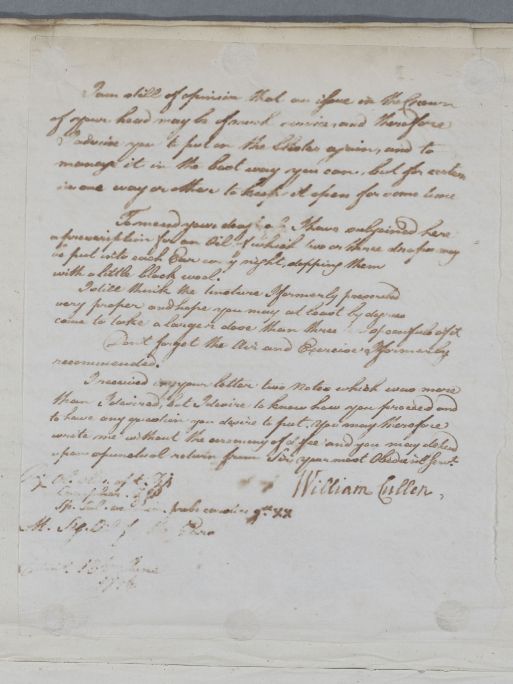 I am still of opinion that an issue in the Crown
of your head may be of much service and therefore
I advise you to put on the blister again, and to
manage it in the best way you can, but for certain
in one way or other to keep it open for some time
To mend your deafness I have subjoined here
a prescription for an Oil of which two or three drops may
be put into each Ear every night, stopping them
with a little black wool.
I still think the tincture I formerly proposed
very proper and hope you may at least by degrees
come to take a larger dose than three of it
Don't forget the Air and Exercise I formerly
recommended.
I received in your letter two Notes which was more
than I desired, but I desire to know how you proceed and
to have any question you desire to put. You may therefore
write me without the ceremony of a fee and you may depend
upon a punctual return from Sir, your most Obedient Servt.
William Cullen,
M.